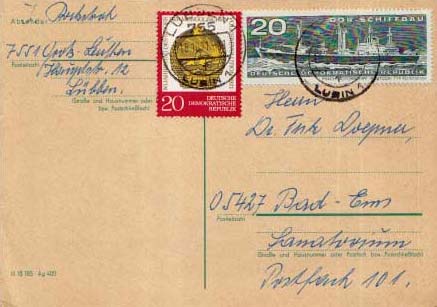 Absender:
7551
Hauptstr. 12
Lübben.
Postleitzahl
Straße und Hausnummer oder
bzw. Postschließfach
III 18 185 Ag 400
755
LUBIN 1
20
DEUTSCHE
DEMOKRATISCHE
REPUBLIK
20 DDR-SCHIFFBAU
DEUTSCHE DEMOKRATISCHE REPUBLIK
LUBIN 1
Herrn
Dr.
05427 Bad-Ems
Postleitzahl
Sanatorium
Straße und Hausnummer oder Postfach bzw. Postschließfach
Postfach 101.